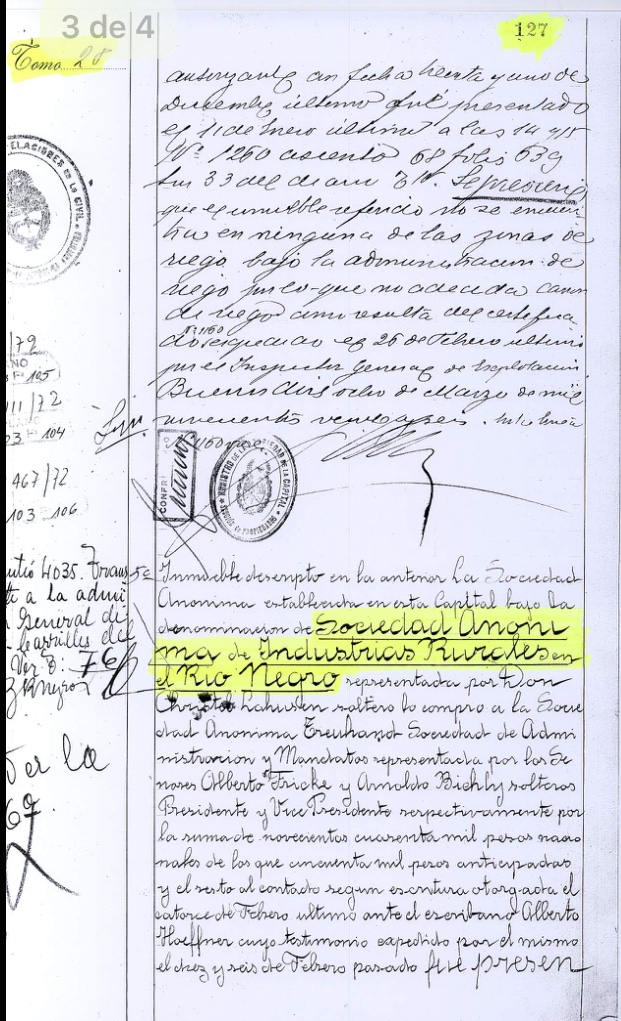 3 de 4
127
Tomo 28
autorizante en fecha treinta y uno de
Diciembre último fué presentado
el 11 de Enero último a las 14 y 15
Nº 1260 asiento 68 folio 639
33 del diario
que el inmueble referido no se encuen
tra en ninguna de las zonas de
riego bajo la administracion de
riego por lo que no adeuda canon
de riego como resulta del certifica
do Nº 1160 el 26 de Febrero último
por el Inspector General de Explotacion.
Buenos Aires ocho de Marzo de mil
novecientos
1160
CONFR
REGISTRO DE LA PROPIEDAD DE LA CAPITAL
CIVIL
/79
NO
Fº 105
111/72
23 Fº 104
467/72
103 106
4035. Trans
te a la admi
General de
carriles del
76
Negro
Ver la
67
5
Inmueble descripto en la anterior La Sociedad
Anonima establecida en esta Capital bajo la
denominacion de Sociedad Anoni
ma de Industrias Rurales en
el Rio Negro representada por Don
Christel Lahusen soltero lo compro a la Socie
dad Anonima Treuhand Sociedad de Admi
nistracion y Mandatos representada por los Se
nores Alberto Fricke y Arnoldo Bichly solteros
Presidente y Vice Presidente respectivamente por
la suma de novecientos cuarenta mil pesos nacio
nales de los que cincuenta mil pesos anticipadas
y el resto al contado segun escritura otorgada el
catorce de Febrero ultimo ante el escribano Alberto
Hoeffner cuyo testimonio expedido por el mismo
el diez y seis de Febrero pasado fue presen